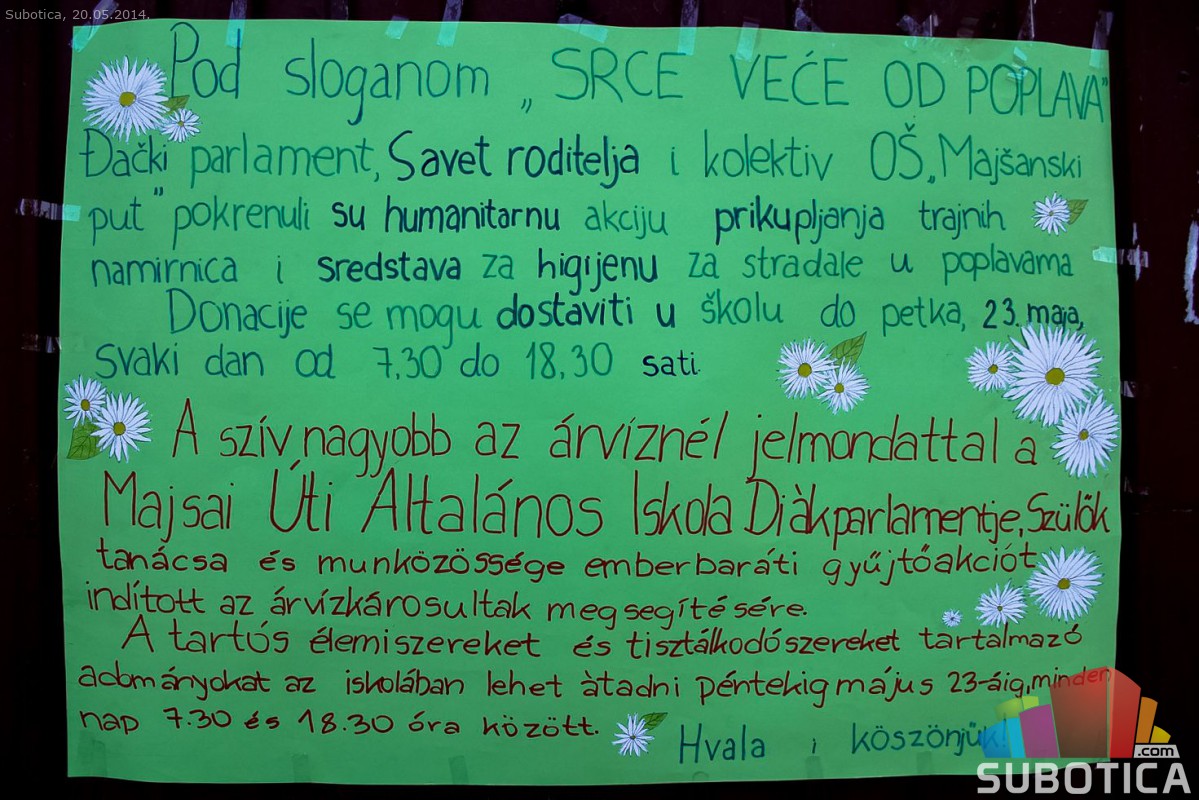 Subotica, 20.05.2014.
Pod sloganom „SRCE VEĆE OD POPLAVA"
Đački parlament, Savet roditelja i kolektiv OŠ „Majšanski
put" pokrenuli su humanitarnu akciju prikupljanja trajnih
namirnica i sredstava za higijenu za stradale u poplavama
Donacije se mogu dostaviti u školu do petka, 23. maja,
svaki dan od 7,30 do 18,30 sati.
A szív nagyobb az árvíznél jelmondattal a
Majsai Úti Altalános Iskola Diàkparlamentje, Szülők
tanácsa és munközössége emberbaráti gyűjtőakciót
indított az árvízkárosultak megsegítésére.
A tartós élemiszereket és tisztálkodószereket tartalmazó
adományokat az iskolában lehet àtadni péntekig május 23-áig, minden
nap 7.30 és 18.30 óra között.
Hvala i köszönjük!
.com
SUBOTICA